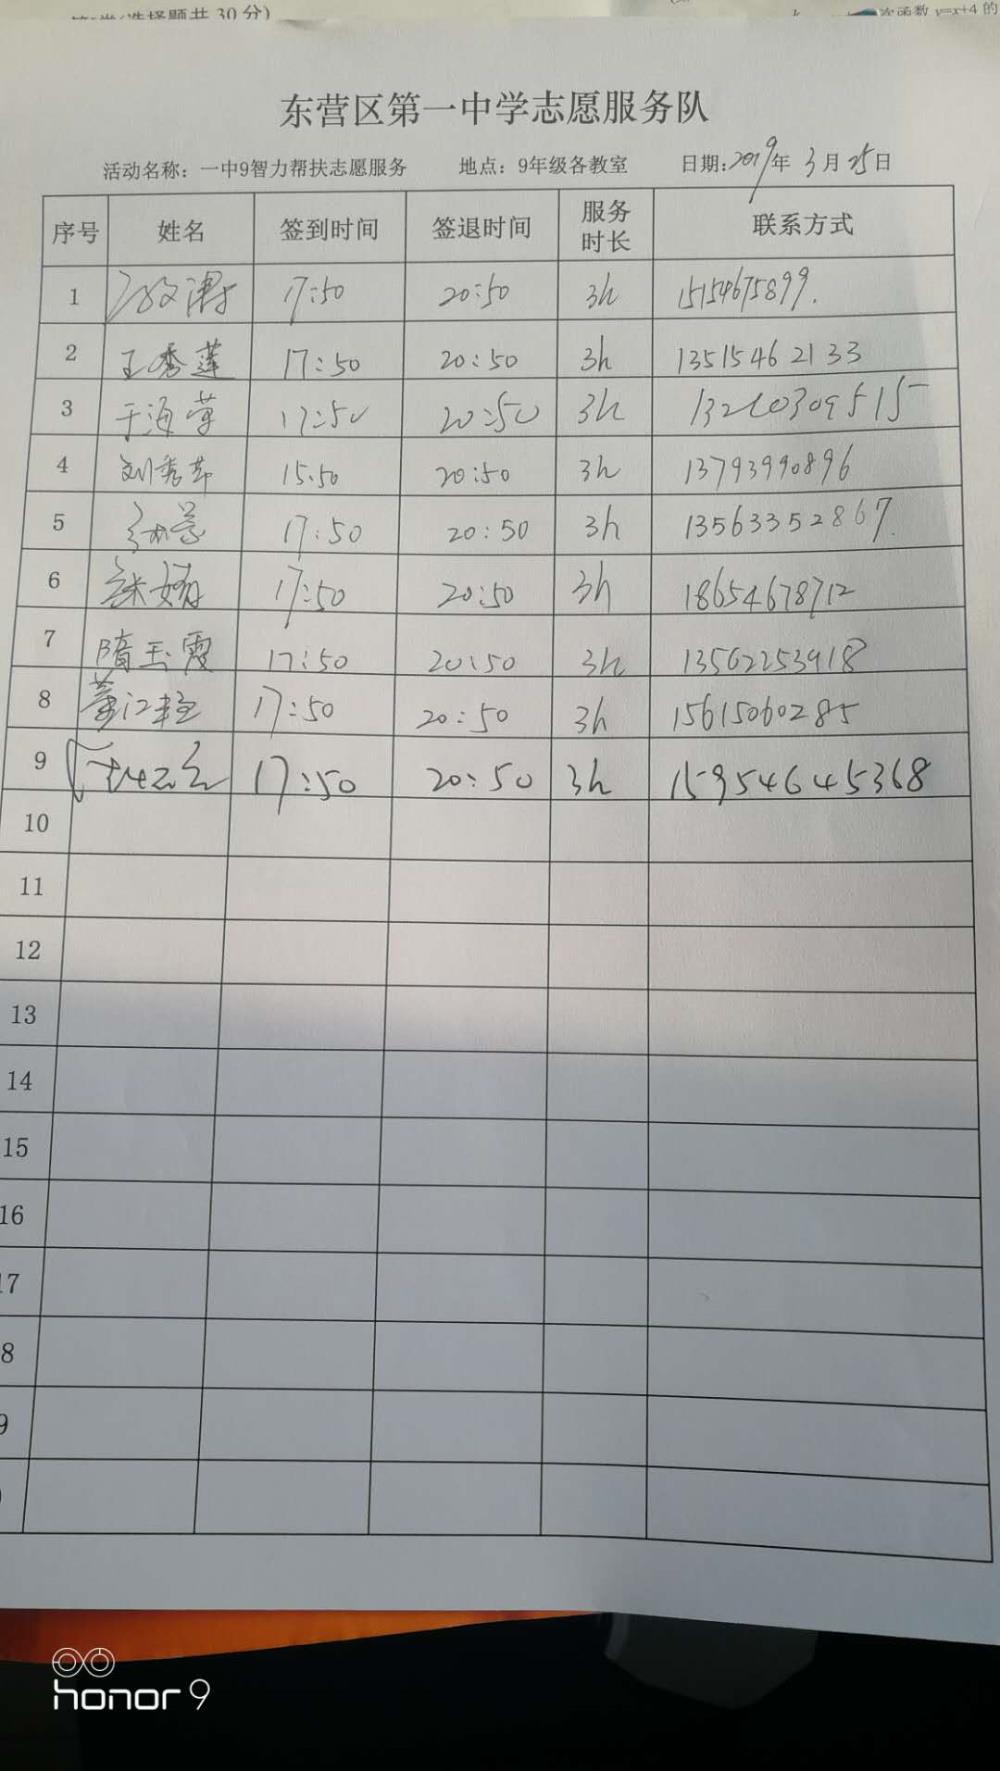 (选择题共 30 分)
次函数 y=x+4 的
东营区第一中学志愿服务队
活动名称：一中9智力帮扶志愿服务 地点：9年级各教室 日期:2019年 3月 25日
序号 姓名 签到时间 签退时间 服务时长 联系方式
1 17:50 20:50 3h 15154675899.
2 王秀莲 17:50 20:50 3h 13515462133
3 于海荣 17:50 20:50 3h 13210309515
4 刘秀芬 15:50 20:50 3h 13793990896
5 17:50 20:50 3h 13563352867.
6 张娟 17:50 20:50 3h 18654678712
7 隋玉霞 17:50 20:50 3h 13562253918
8 17:50 20:50 3h 15615060285
9 17:50 20:50 3h 15954645368
10
11
12
13
14
15
16
17
8
9
honor 9